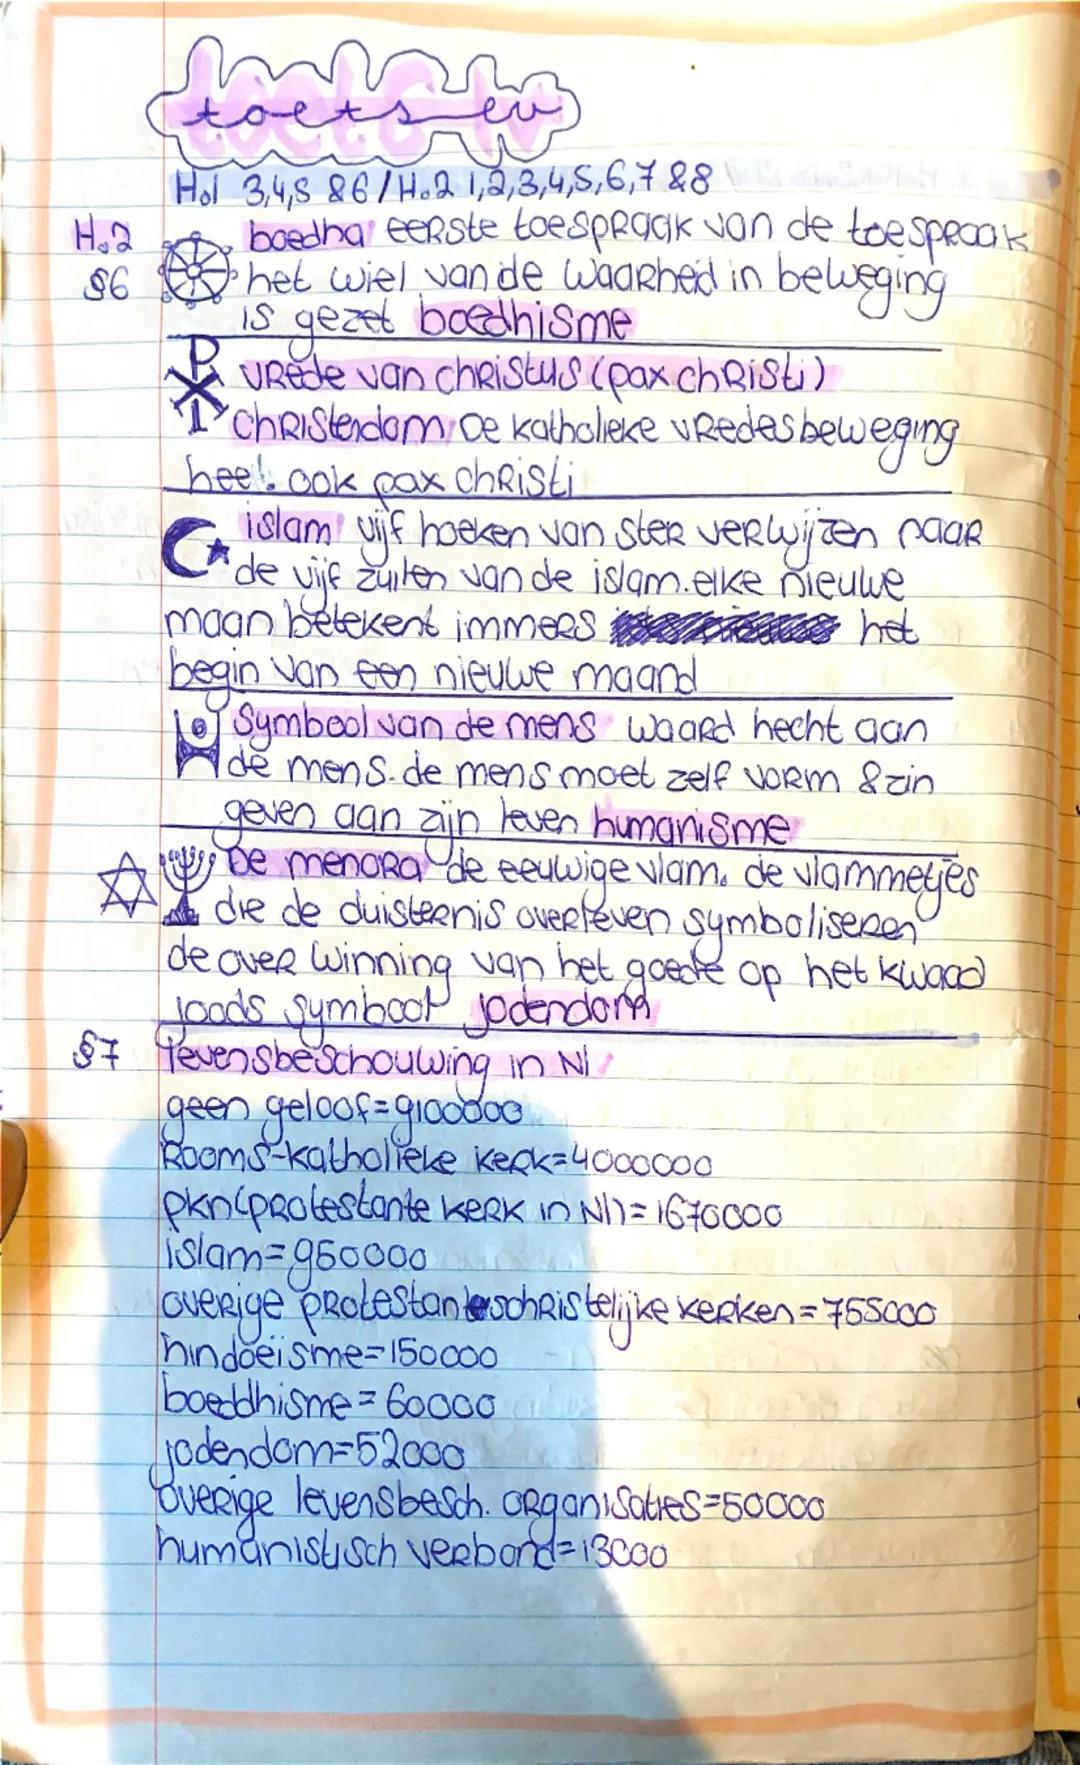 toets lv
H.1 3,4,5 &6/H.2 1,2,3,4,5,6,7 &8
H.2 boedha eerste toespraak van de toespraak
§6 het wiel van de waarheid in beweging
is gezet boedhisme
vrede van christus (pax christi)
Christendom De katholieke vredesbeweging
heet ook pax christi
islam vijf hoeken van ster verwijzen naar
de vijf zuilen van de islam. elke nieuwe
maan betekent immers het
begin van een nieuwe maand
Symbool van de mens waard hecht aan
de mens. de mens moet zelf vorm & zin
geven aan zijn leven humanisme
De menora de eeuwige vlam. de vlammetjes
die de duisternis overleven symboliseren
de over winning van het goede op het kwaad
joods symbool jodendom
§7 levensbeschouwing in Nl
geen geloof=9100000
Rooms-katholieke kerk=4000000
pkn(protestante kerk in Nl)=1670000
islam=950000
overige protestantschristelijke kerken=755000
hindoeïsme=150000
boeddhisme=60000
jodendom=52000
overige levensbesch. organisaties=50000
humanistisch verbond=13000